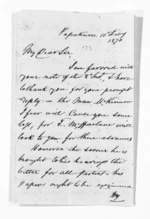 Papakura 12 Feby
1870
My Dear Sir
I am favored with
your note of the 8 Inst, I have
to thank you for your prompt
reply - the Mr McKinnon
I fear will cause you some
loss, for J. McFarlane will
look to you for those advances
However the sooner he is
brought to book he accepts the
better for all parties - his
papers ought to be